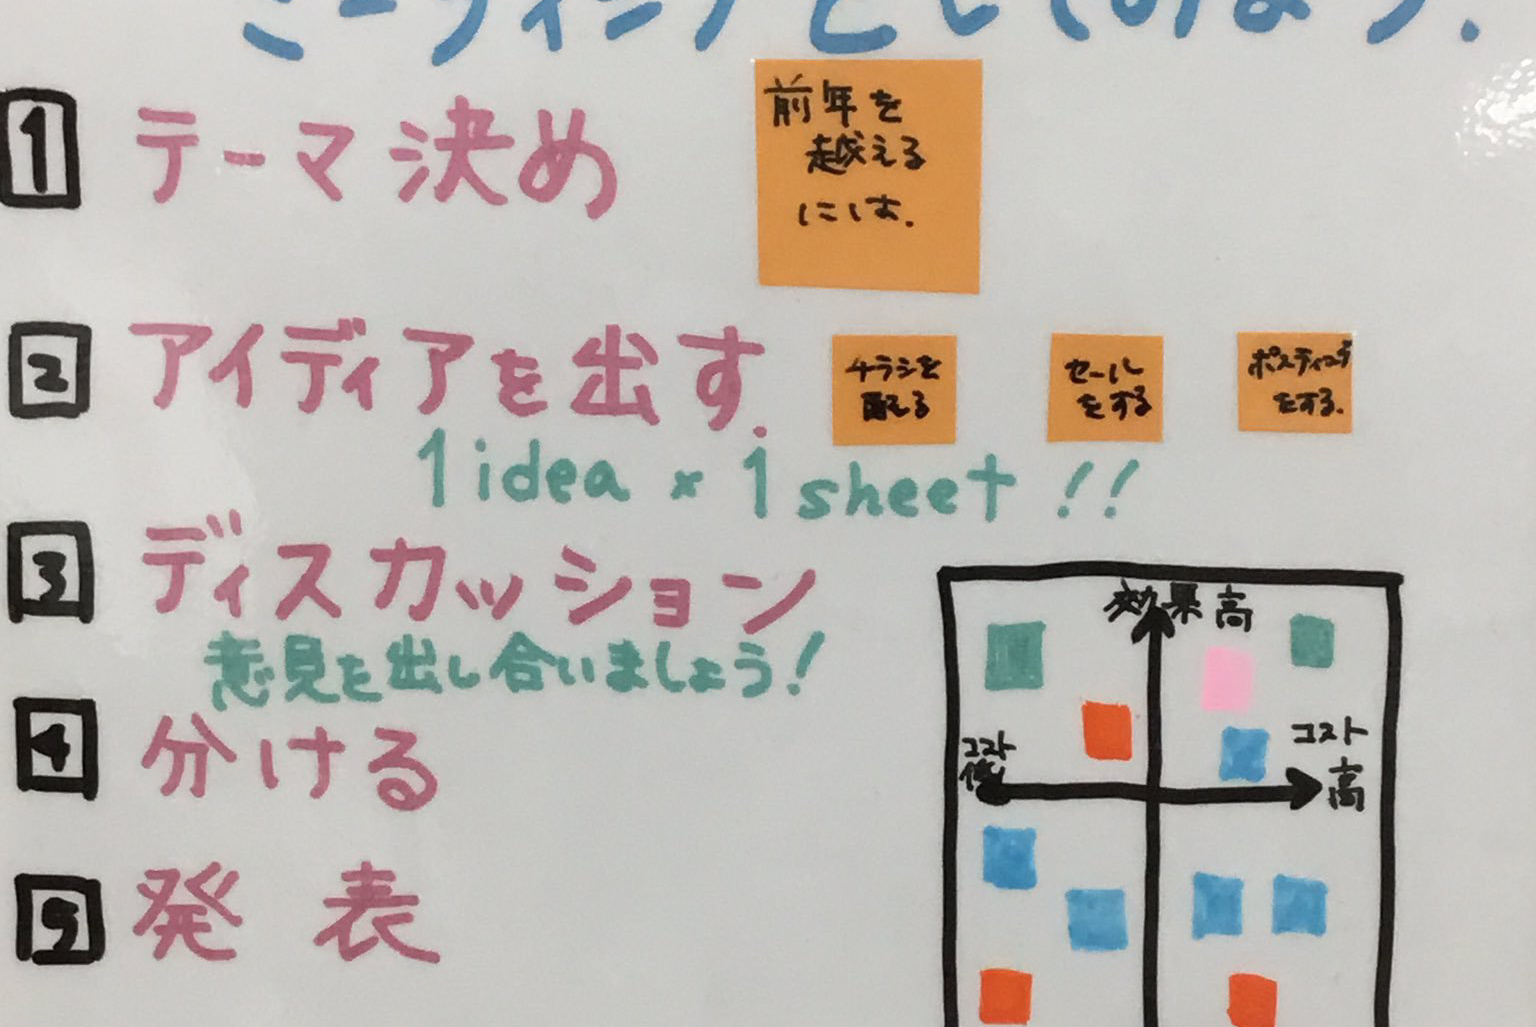 ミーティングをしてみよう.
1 テーマ決め
前年を
越える
には.
2 アイディアを出す.
チラシを
配る
セール
をする
ポスティング
をする.
1 idea × 1 sheet !!
3 ディスカッション
意見を出し合いましょう!
4 分ける
効果高
コスト
低
コスト
高
5 発表